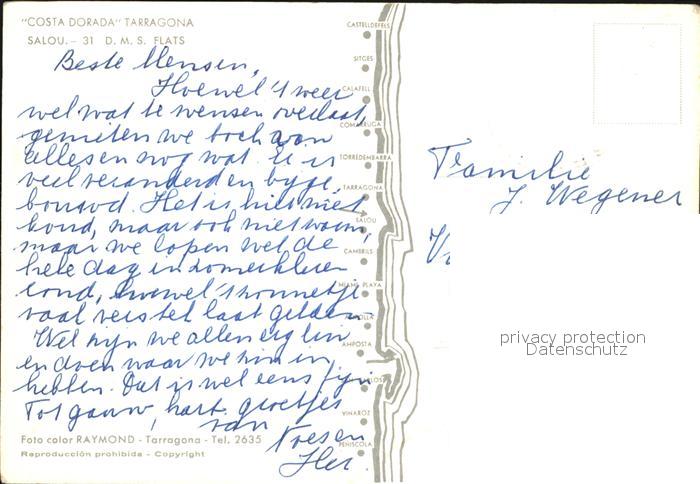 "COSTA DORADA" TARRAGONA
SALOU.- 31 D. M. S. FLATS
Beste Mensen,
Hoewel 't weer
wel wat te wensen overlaat,
genieten we toch van
alles en nog wat. Er is
veel veranderd en bijge
bouwd. Het is hier niet
koud, maar ook niet warm,
maar we lopen wel de
hele dag in zomerkleren
rond, hoewel 't zonnetje
vaak verstek laat gelden.
Wel zijn we allen erg lui
en doen waar we zin in
hebben. Dat is wel eens fijn.
Tot gauw, hart. groetjes
van
Koesen
Foto color RAYMOND - Tarragona - Tel. 2635
Reproducción prohibida - Copyright
CASTELLDEFELS
SITGES
CALAFELL
COMARRUGA
TORREDEMBARRA
TARRAGONA
SALOU
CAMBRILS
MIAMI PLAYA
AMPOSTA
VINAROZ
PEÑISCOLA
Familie
J. Wegener
privacy protection
Datenschutz